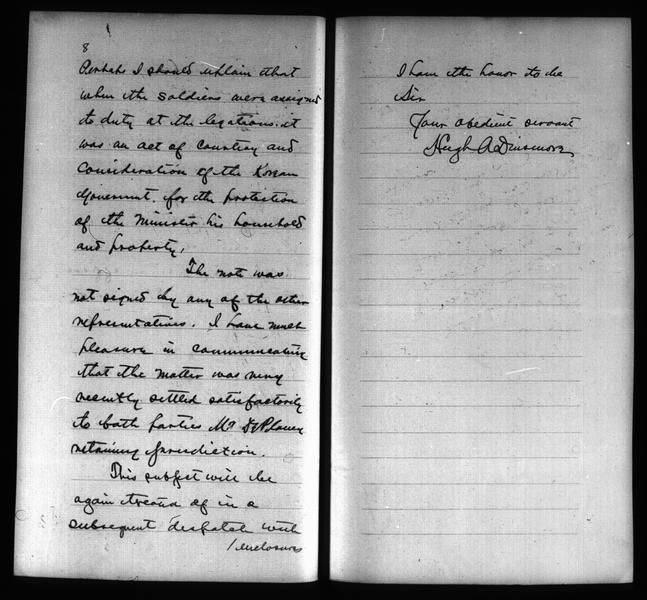 8
Perhaps I should explain that
when the soldiers were assigned
to duty at the legations it
was an act of courtesy and
consideration of the Korean
Government. for the protection
of the Minister his household
and property.
The note was
not signed by any of the other
representatives. I have much
pleasure in communicating
that the matter was very
recently settled satisfactorily
to both parties Mr De Plancy
retaining jurisdiction.
This subject will be
again treated of in a
subsequent despatch with
1 enclosures
I have the honor to be
Sir
Your obedient servant
Hugh A Dinsmore